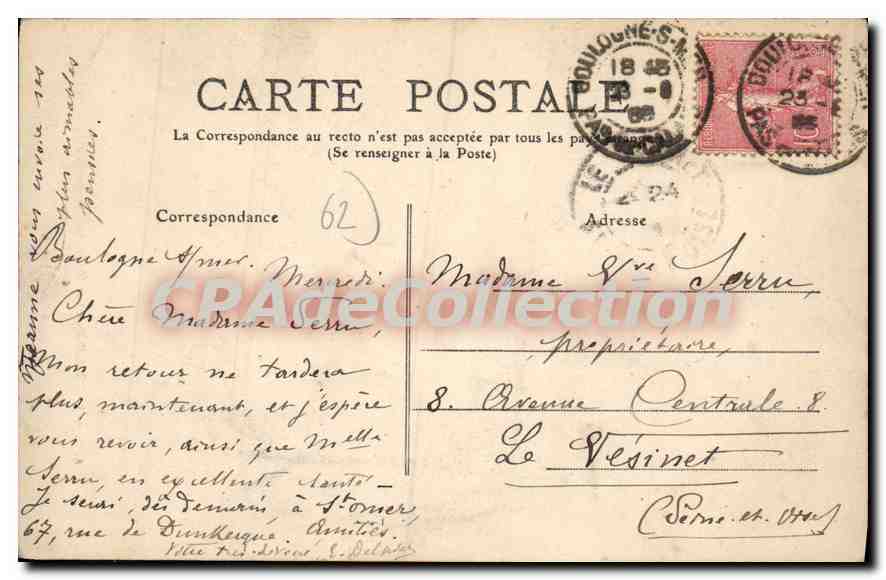 CARTE POSTALE
La Correspondance au recto n'est pas acceptée par tous les pays étrangers
(Se renseigner à la Poste)
Correspondance
62
Boulogne s/mer. Mercredi.
Chère Madame Serru,
Mon retour ne tardera
plus, maintenant, et j'espère
vous revoir, ainsi que Melle
Serru, en excellente santé.
Je serai, dès demain, à St omer,
67, rue de Dunkerque. Amitiés.
Votre très dévoué, E.
Jeanne vous envoie ses
plus aimables
pensées.
Adresse
Madame Vve Serru,
propriétaire,
8. Avenue Centrale. 8.
Le Vésinet
(Seine-et-Oise)
BOULOGNE-S-MER
PAS
BOULOGNE
PAS
10
CPAdeCollection